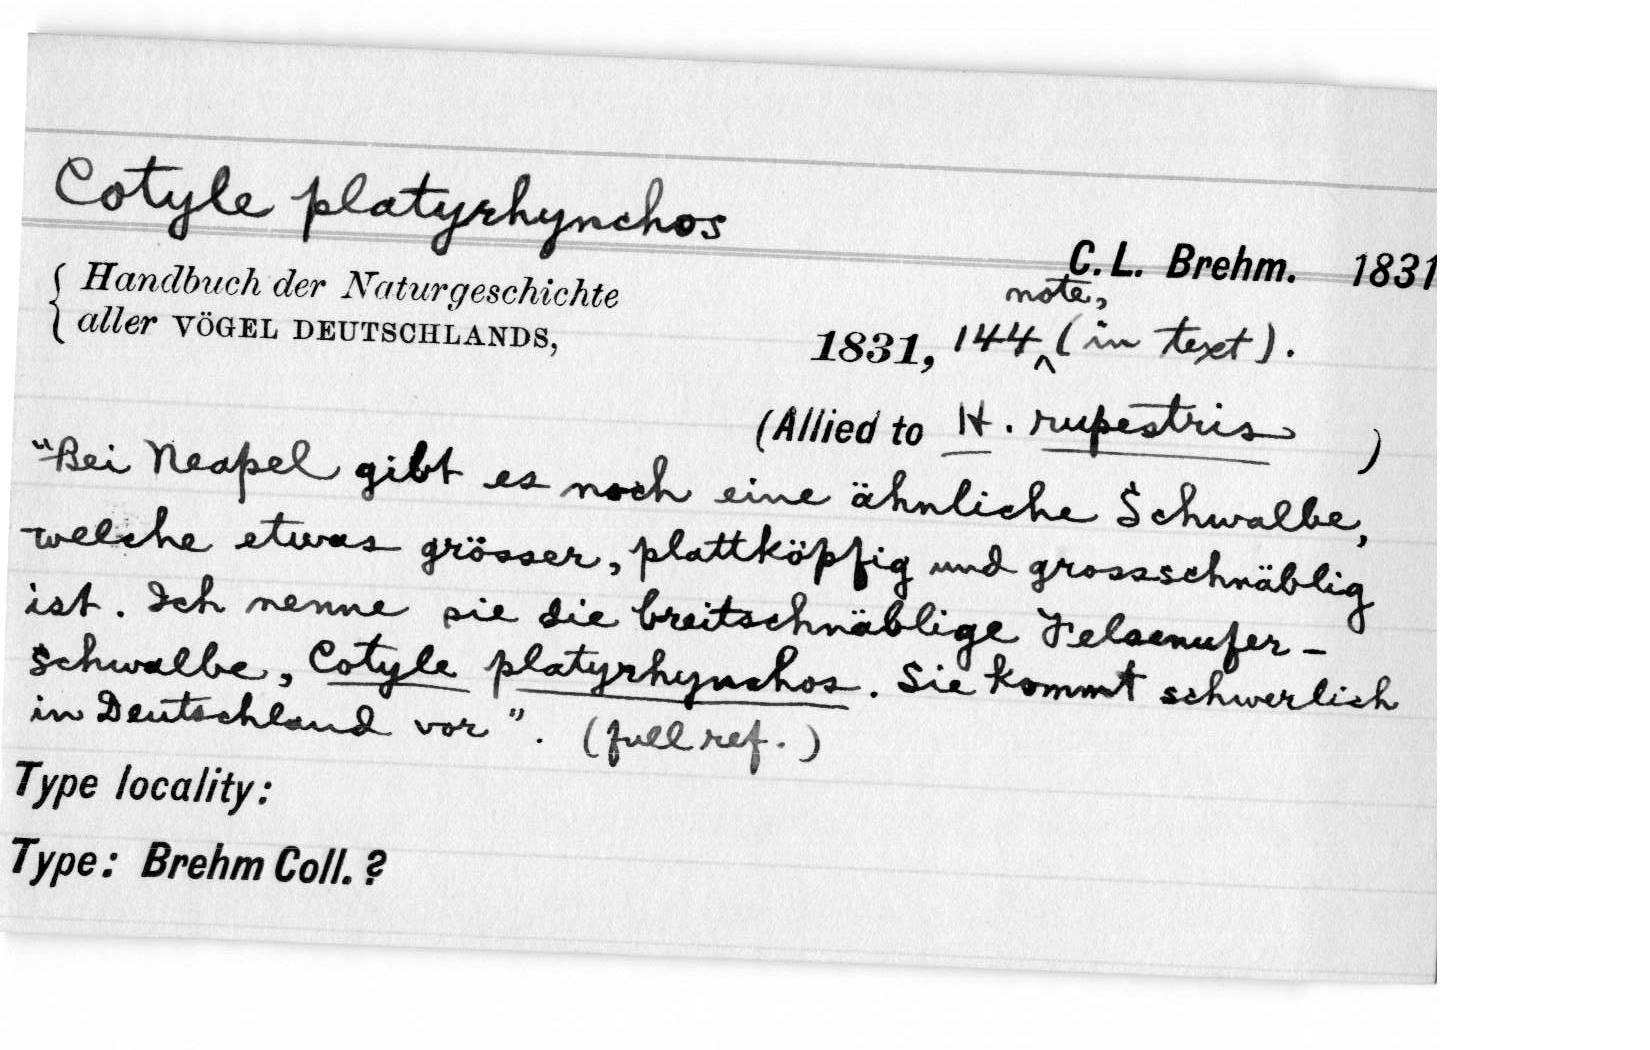 Cotyle platyrhynchos
C. L. Brehm. 1831
Handbuch der Naturgeschichte
aller VÖGEL DEUTSCHLANDS,
note,
1831, 144 ^ (in text).
(Allied to H. rupestris )
"Bei Neapel gibt es noch eine ähnliche Schwalbe,
welche etwas grösser, plattköpfig und grossschnäblig
ist. Ich nenne sie die breitschnäblige Felsenufer-
schwalbe, Cotyle platyrhynchos. Sie kommt schwerlich
in Deutschland vor". (full ref.)
Type locality:
Type: Brehm Coll. ?